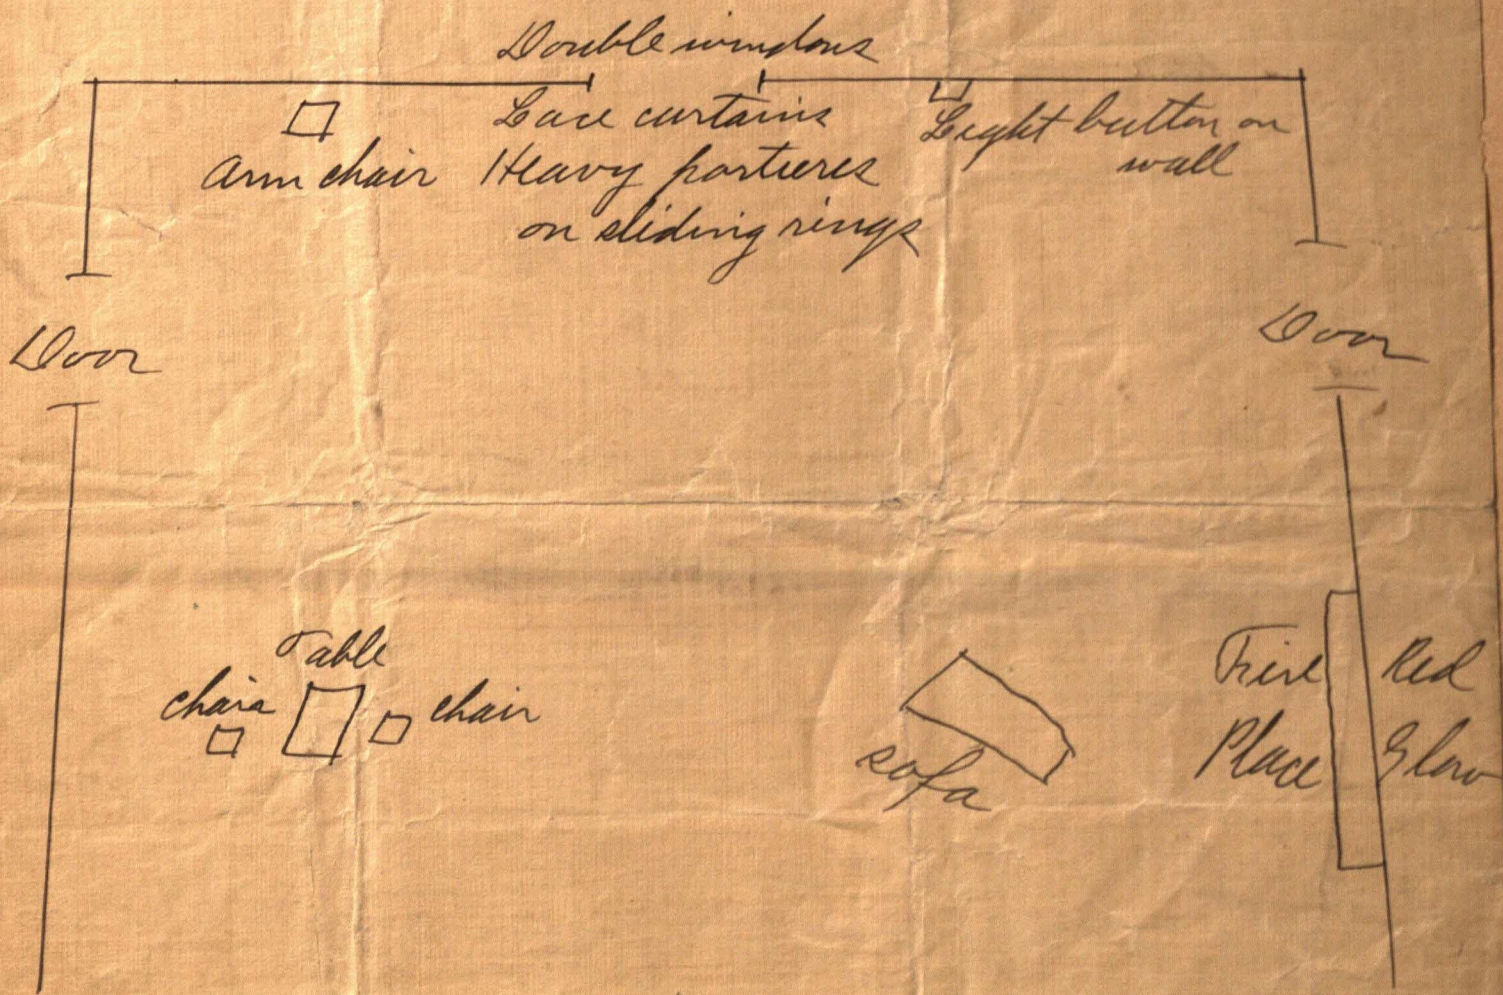 Double windows
Lace curtains
Heavy portieres
on sliding rings
Arm chair
Light button on
wall
Door
Door
Table
chair
chair
sofa
Fire
Place
Red
Glow